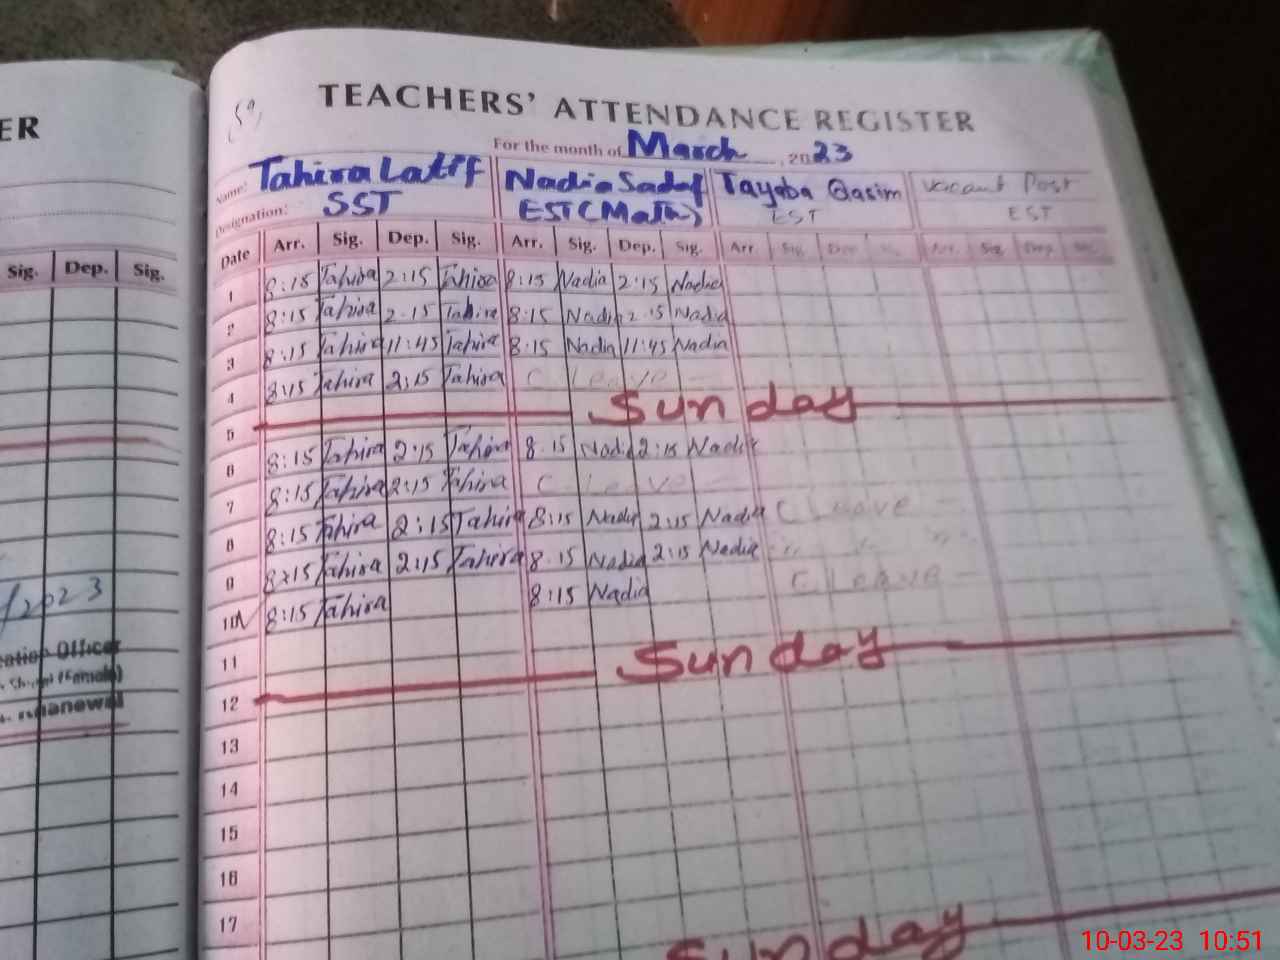 ER
TEACHERS' ATTENDANCE REGISTER
For the month of March, 2023
Name: Tahira Latif Nadia Sadaf Tayaba Qasim Vacant Post
Designation: SST EST (Math) EST EST
Sig. Dep. Sig.
Date Arr. Sig. Dep. Sig. Arr. Sig. Dep. Sig. Arr. Sig. Dep. Arr. Sig. Dep.
1 8:15 Tahira 2:15 Tahira 8:15 Nadia 2:15 Nadia
2 8:15 Tahira 2.15 Tahira 8:15 Nadia 2.15 Nadia
3 8:15 Tahira 11:45 Tahira 8:15 Nadia 11:45 Nadia
4 8:15 Tahira 2:15 Tahira C Leave
5 Sunday
6 8:15 Tahira 2:15 Tahira 8.15 Nadia 2:15 Nadia
7 8:15 Tahira 2:15 Tahira C Leave
8 8:15 Tahira 2:15 Tahira 8:15 Nadia 2:15 Nadia C Leave
9 8:15 Tahira 2:15 Tahira 8.15 Nadia 2:15 Nadia
10 8:15 Tahira 8:15 Nadia C Leave
11
12 Sunday
13
14
15
16
17
Sunday
/2023
Officer
(Female)
Khanewal
10-03-23 10:51